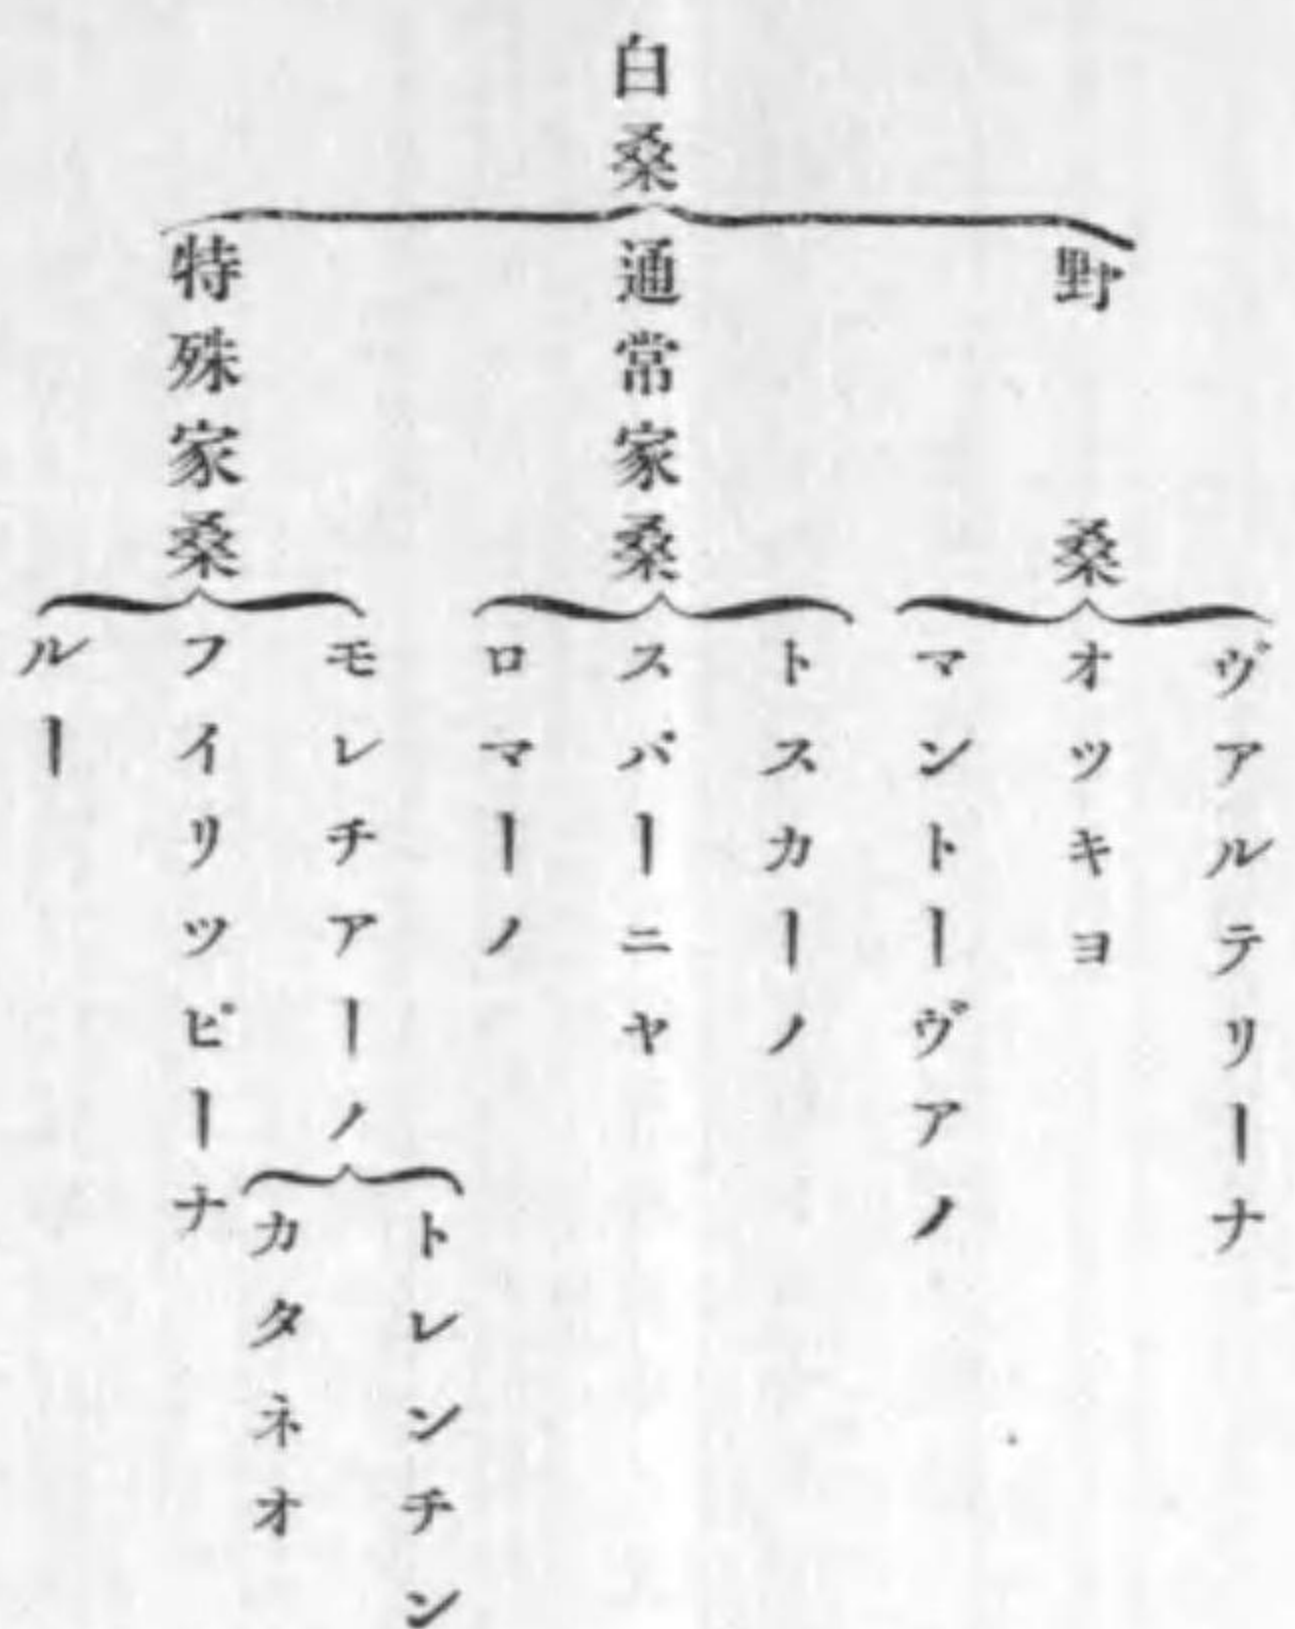 白桑
野桑
ヴアルテリーナ
オツキヨ
マントーヴアノ
通常家桑
トスカーノ
スパーニヤ
ロマーノ
特殊家桑
モレチアーノ
トレンチン
カタネオ
フイリツピーナ
ルー